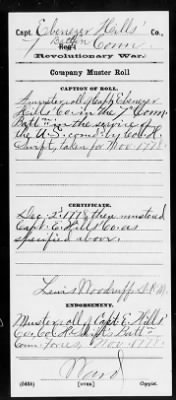 Capt. Ebenezer Hills' Co.,
7 Battn Conn.
Reg't
Revolutionary War.
Company Muster Roll
CAPTION OF ROLL.
A muster roll of Capt. Ebenezer
Hills' Co. in the 7th Conn.
Batt'n in the service of
the U.S. comd. by Col. H.
Swift, taken for Nov. 1778.
CERTIFICATE.
Dec. 2d 1778 then mustered
Capt. E. Hills' Co. as
specified above.
Lewis Woodruff
ENDORSEMENT.
Muster roll of Capt. E. Hills'
Co. Col. Hn. Swift's Batt'n
Conn. Forces, Nov. 1778.
Ward
Copyist.